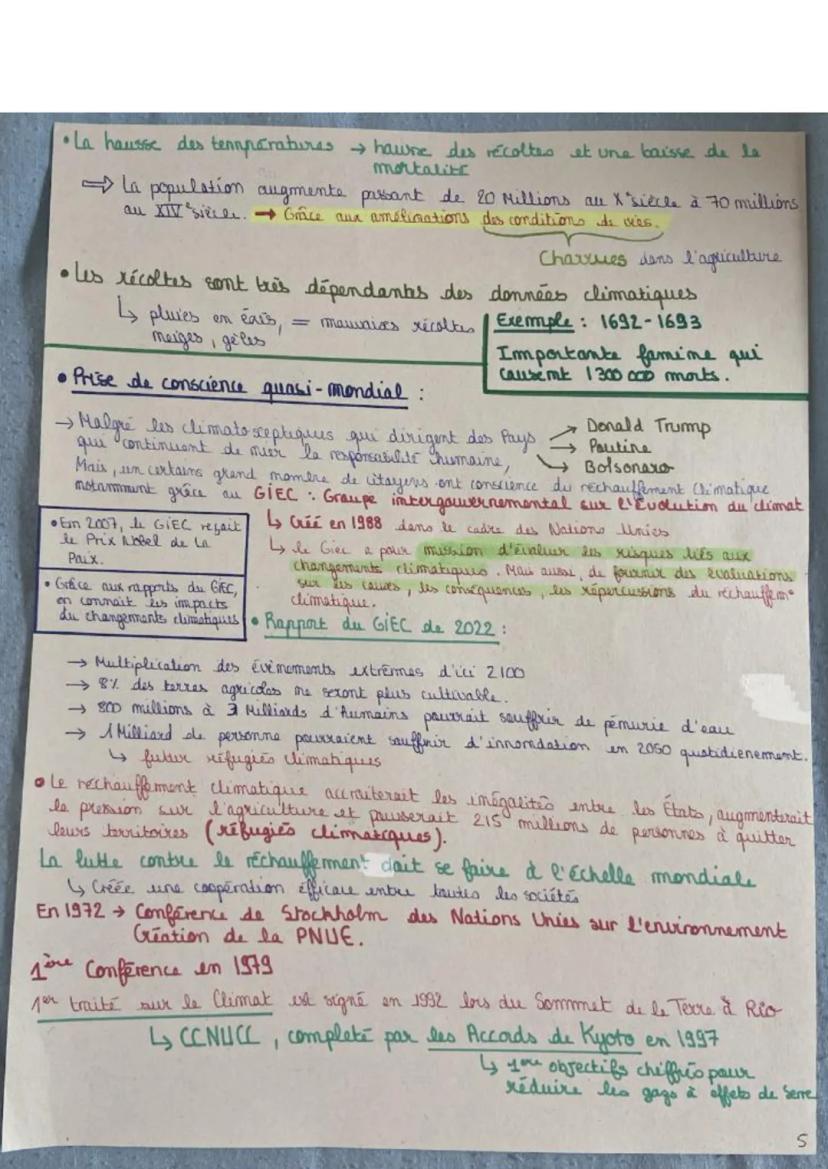 • La hausse des températures → hausse des récoltes et une baisse de la
mortalité
⇒ La population augmente passant de 20 Millions au X° siècle à 70 millions
au XIV° siècle. → Grâce aux améliorations des conditions de vies.
Charrues dans l'agriculture
• Les récoltes sont très dépendantes des données climatiques
↳ pluies en étés, = mauvaises récoltes
neiges, gèles
Exemple : 1692-1693
Importante famine qui
causent 1 300 000 morts.
• Prise de conscience quasi-mondial :
→ Malgré les climatosceptiques qui dirigent des Pays
qui continuent de nier la responsabilité humaine,
→ Donald Trump
→ Poutine
→ Bolsonaro
Mais, un certains grand nombre de citoyens ont conscience du réchauffement climatique
notamment grâce au GIEC : Groupe intergouvernemental sur l'Évolution du climat
↳ Créé en 1988 dans le cadre des Nations Unies
↳ le Giec a pour mission d'évaluer les risques liés aux
changements climatiques. Mais aussi, de fournir des évaluations
sur les causes, les conséquences, les répercussions du réchauffem°
climatique.
• En 2007, le GIEC reçait
le Prix Nobel de La
Paix.
• Grâce aux rapports du GIEC,
on connait les impacts
du changements climatiques
• Rapport du GIEC de 2022 :
→ Multiplication des évènements extrêmes d'ici 2100
→ 8% des terres agricoles ne seront plus cultivable.
→ 800 millions à 3 Milliards d'humains pourrait souffrir de pénurie d'eau
→ 1 Milliard de personne pourraient souffrir d'innondation en 2050 quotidienement.
↳ futur réfugiés climatiques
• Le réchauffement climatique accroiterait les inégalités entre les États, augmenterait
la pression sur l'agriculture et pousserait 215 millions de personnes à quitter
leurs territoires (réfugiés climatiques).
La lutte contre le réchauffement doit se faire à l'échelle mondiale
↳ Créée une coopération éfficace entre toutes les sociétés
En 1972 → Conférence de Stockholm des Nations Unies sur l'environnement
Création de la PNUE.
1ère Conférence en 1979
1er traité sur le Climat est signé en 1992 lors du Sommet de la Terre à Rio
↳ CCNUCC, completé par les Accords de Kyoto en 1997
↳ 1ere objectifs chiffrés pour
réduire les gags à effets de Serre
5